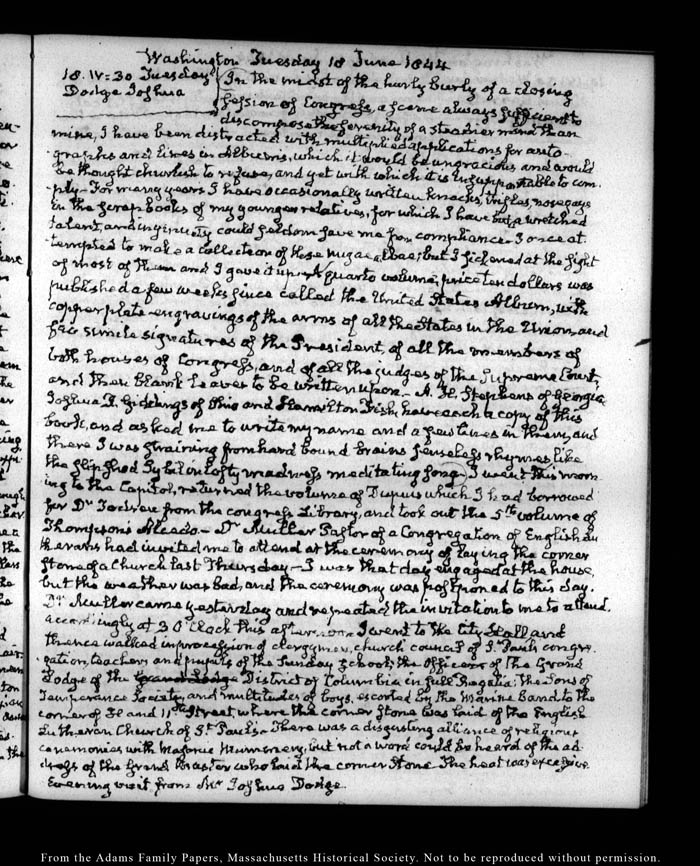 Washington Tuesday 18 June 1844
18. IV=30 Tuesday In the midst of the hurly burly of a closing
Dodge Joshua Session of Congress, a scene always sufficient to
discompose the serenity of a steadier mind than
mine, I have been distracted with multiplied applications for auto-
graphs and lines in Albums, which it would be ungracious and would
be thought churlish to refuse, and yet with which it is insupportable to com-
ply. For many years I have occasionally written knacks, trifles, nosegays
in the scrap books of my younger relatives, for which I have but a wretched
talent, and ingenuity could seldom save me from compliance. I once at-
tempted to make a collection of these nugae albae; but I sickened at the sight
of most of them and I gave it up. A quarto volume, price ten dollars was
published a few weeks since called the United States Album, with
copperplate engravings of the arms of all the States in the Union, and
fac simile signatures of the President, of all the members of
both houses of Congress, and of all the judges of the Supreme Court,
and then blank leaves to be written upon. A. H. Stephens of Georgia
Joshua R. Giddings of Ohio and Hamilton Fish, have each a copy of this
book, and asked me to write my name and a few lines in them, and
there I was straining from hard bound brains senseless rhymes like
the slipshod Sybil in lofty madness meditating song. I went this morn-
ing to the Capitol, returned the volume of Dupuis which I had borrowed
for Dr from the congress Library, and took out the 5th volume of
Thompson's Alcedo. Dr Muller Pastor of a Congregation of English Lu-
therans had invited me to attend at the ceremony of laying the corner
stone of a church last Thursday. I was that day engaged at the house,
but the weather was bad, and the ceremony was postponed to this day.
Dr Muller came yesterday and repeated the invitation to me to attend.
accordingly at 3 O'Clock this afternoon I went to the City Hall, and
thence walked in procession of clergymen, church council of St Pauls congre-
gation, teachers and pupils of the Sunday School; the officers of the Grand
Lodge of the District of Columbia in full Regalia; the Sons of
Temperance Society, and multitudes of boys, escorted by the Marine Band to the
corner of H and 11th Street, where the corner Stone was laid of the English
Lutheran Church of St Pauls. There was a disgusting alliance of religious
ceremonies with Masonic Mummery; but not a word could be heard of the ad-
dress of the Grand Master who laid the corner Stone. The heat was excessive
Evening visit from Mr Joshua Dodge.
From the Adams Family Papers, Massachusetts Historical Society. Not to be reproduced without permission.